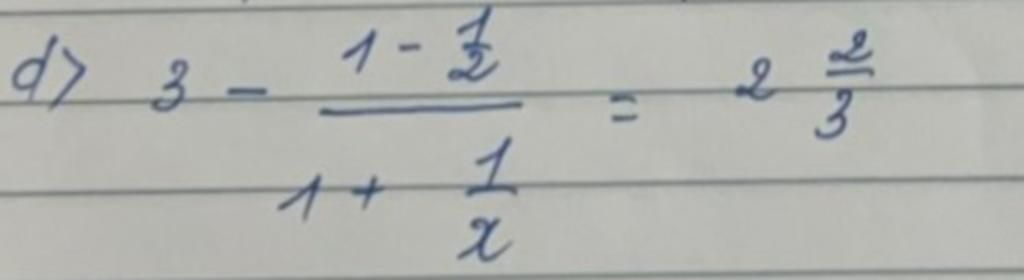 d> 3 - (1 - 1/2)/(1 + 1/x) = 2 2/3